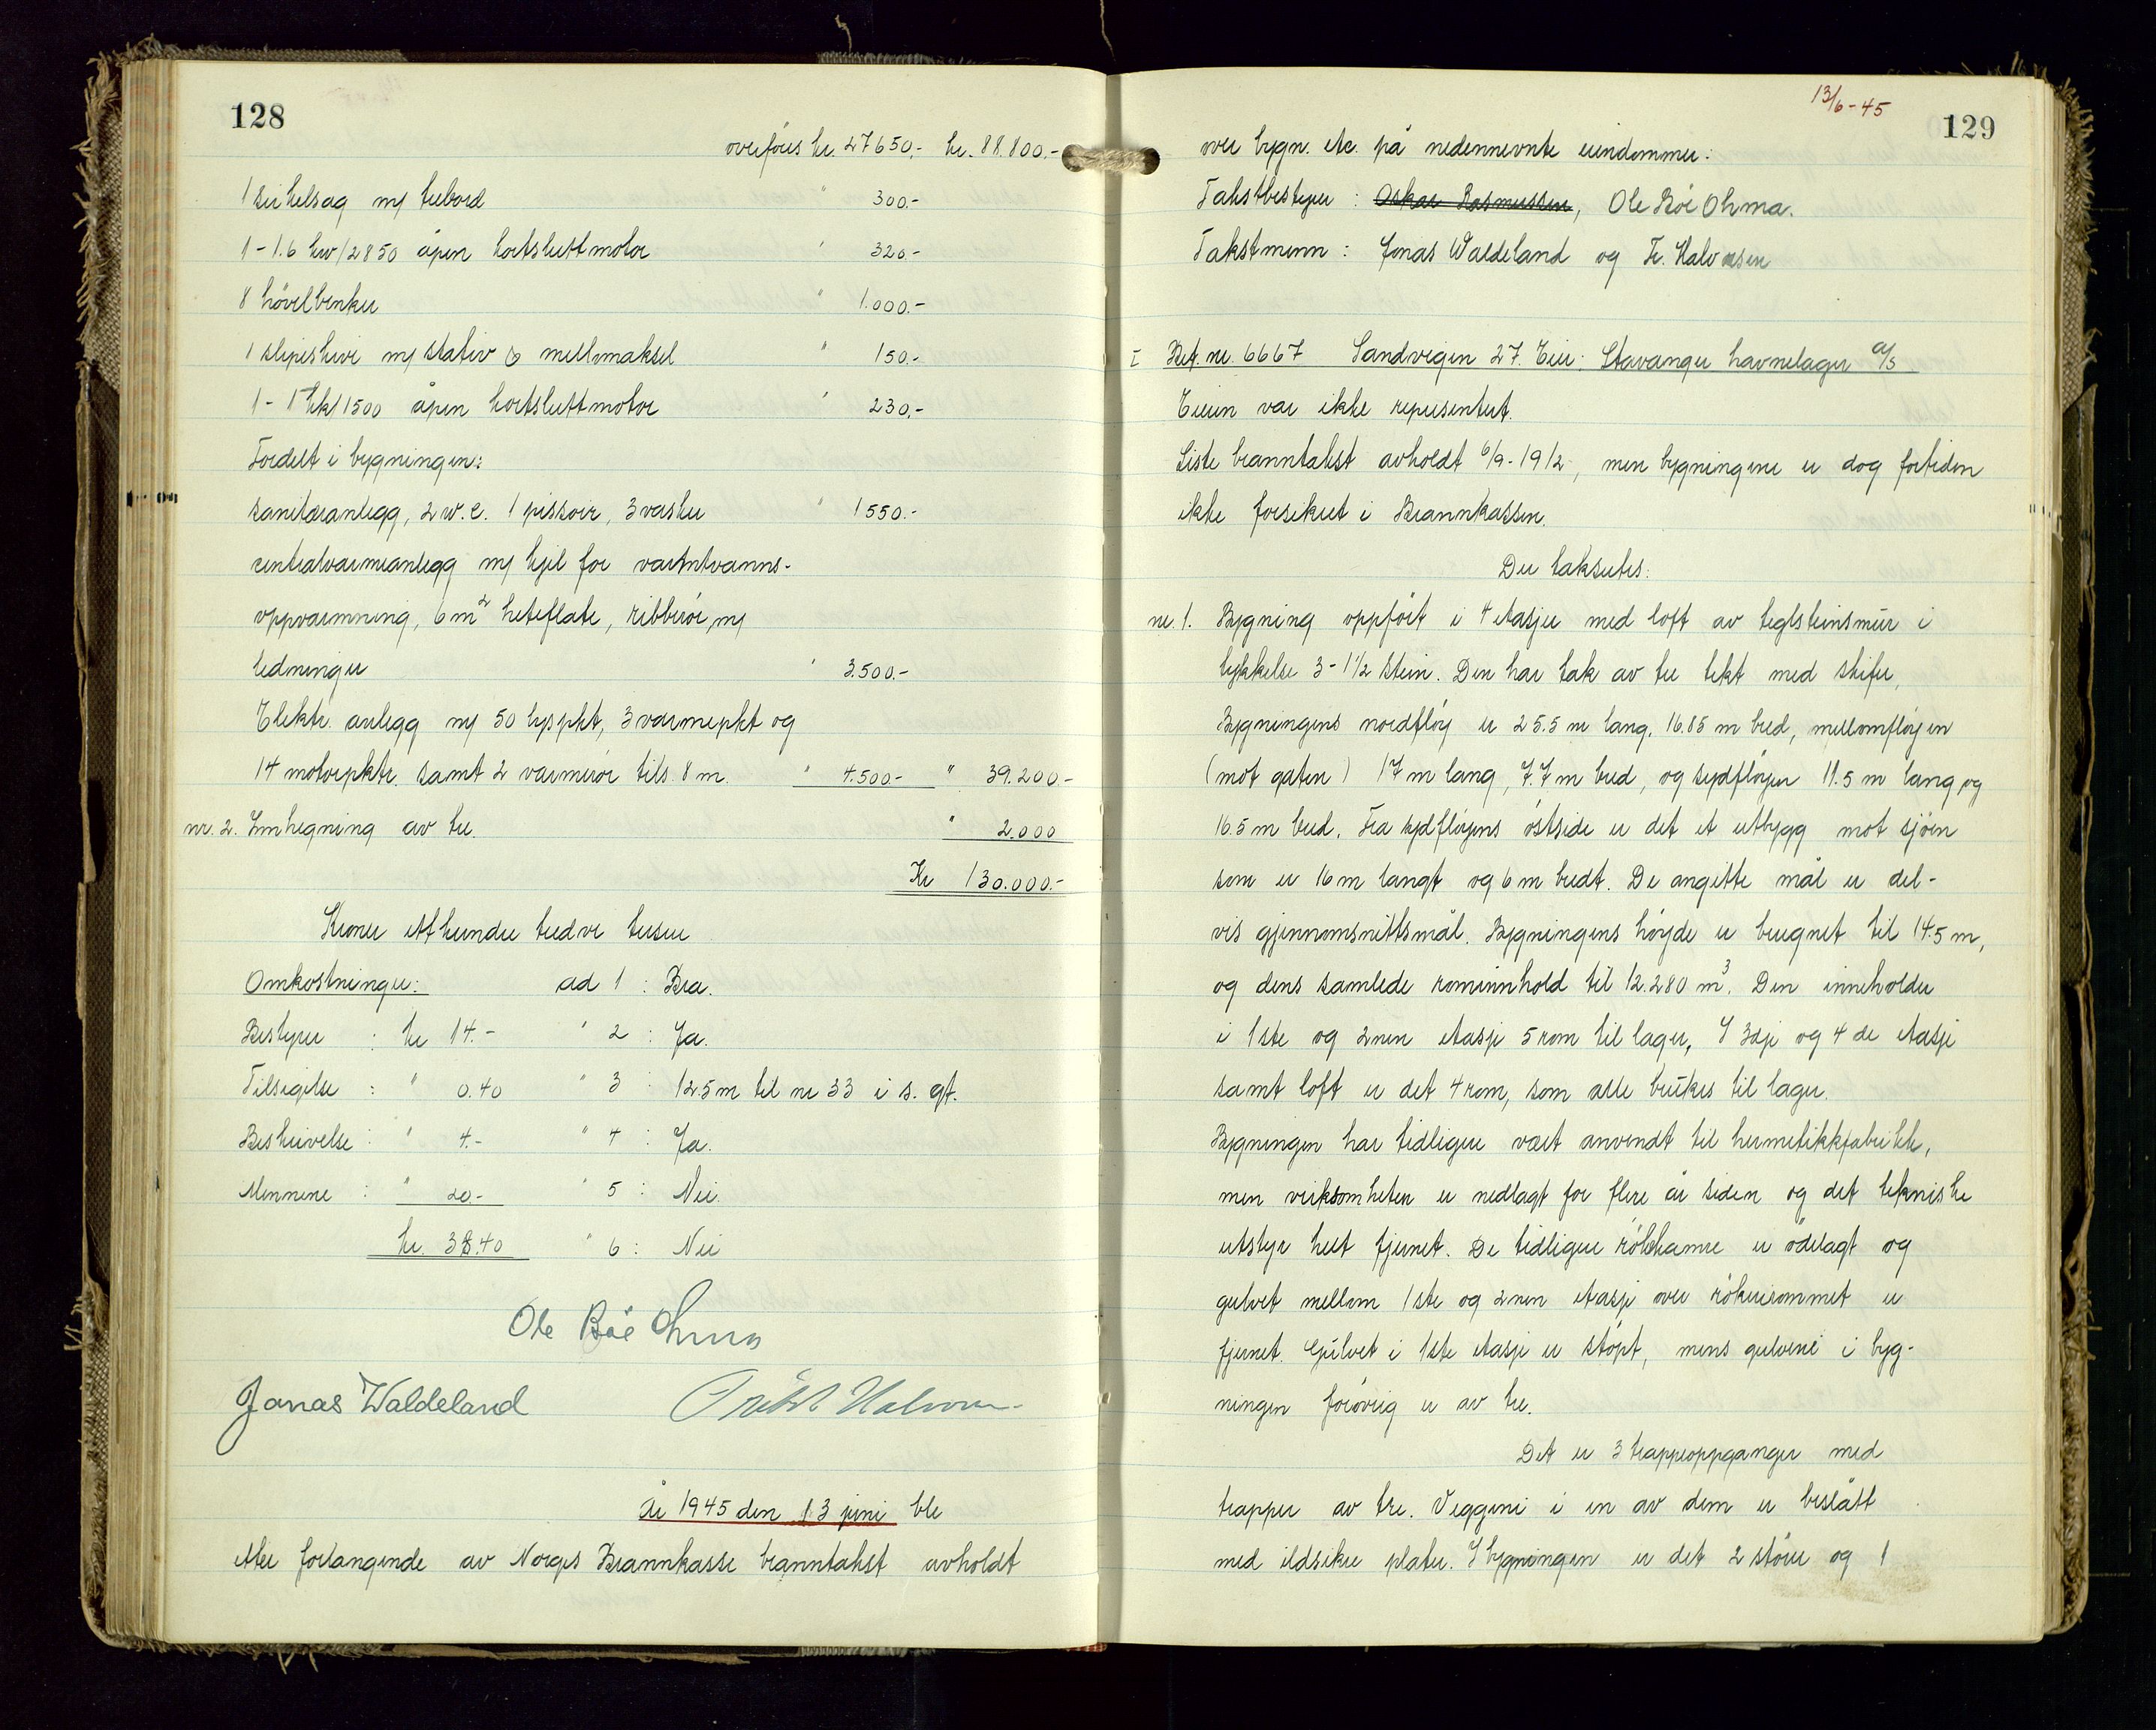 128
overföres kr. 27650,- kr. 88.800.-
1 sirkelsag m/ trebord " 300.-
1-1.6 kw/2850 åpen kortsluttmotor " 320.-
8 hövelbenker " 1.000.-
1 slipeskive m/ stativ & mellomaksel " 150.-
1-1 hk/1500 åpen kortsluttmotor " 230.-
Fordelt i bygningen:
sanitæranlegg, 2 w.c. 1 pissoir, 3 vasker " 1550.-
sentralvarmeanlegg m/ kjel for varmtvanns-
oppvarmning, 6 m² heteflate, ribberör m/
ledninger " 3.500.-
Elektr. anlegg m/ 50 lyspkt, 3 varmepkt og
14 motorpktr. samt 2 varmerör tils. 8 m. " 4.500- " 39.200.-
nr. 2. Innhegning av tre. " 2.000
Kr 130.000.-
Kroner etthundre tredve tusen
Omkostninger: ad 1 : Bra.
Bestyrer : kr 14.- " 2 : Ja.
Tilsigelse : " 0.40 " 3 : 12.5 m til nr 33 i s. gt.
Beskrivelse : " 4.- " 4 : Ja.
Mennene : " 20.- " 5 : Nei.
kr. 38.40 " 6 : Nei
Ole Böe Ohma
Jonas Waldeland Halvorsen
År 1945 den 13 juni ble
etter forlangende av Norges Brannkasse branntakst avholdt
13/6-45
129
over bygn. etc. på nedennevnte eiendommer:
Takstbestyrer : Oskar Rasmussen, Ole Böe Ohma.
Takstmenn : Jonas Waldeland og Fr. Halvorsen
I Bet. nr. 6667 Sandvigen 27. Eier: Stavanger havnelager a/s
Eieren var ikke representert.
Siste branntakst avholdt 6/9-1912, men bygningene er dog fortiden
ikke forsikret i Brannkassen.
Der takseres:
nr. 1. Bygning oppfört i 4 etasjer med loft av teglsteinsmur i
tykkelse 3-1½ stein. Den har tak av tre tekt med skifer,
Bygningens nordflöy er 25.5 m lang, 16.85 m bred, mellomflöyen
(mot gaten) 17 m lang, 7.7 m bred, og sydflöyen 11.5 m lang og
16.5 m bred. Fra sydflöyens östside er det et utbygg mot sjöen
som er 16 m langt og 6 m bredt. De angitte mål er del-
vis gjennomsnittsmål. Bygningens höyde er beregnet til 14.5 m,
og dens samlede rominnhold til 12.280 m³. Den inneholder
i 1ste og 2nen etasje 5 rom til lager, I 3dje og 4 de etasje
samt loft er det 4 rom, som alle brukes til lager.
Bygningen har tidligere vært anvendt til hermetikkfabrikk,
men virksomheten er nedlagt for flere år siden og det tekniske
utstyr helt fjernet. De tidligere rökekamre er ödelagt og
gulvet mellom 1ste og 2nen etasje over rökerirommet er
fjernet. Gulvet i 1ste etasje er stöpt, mens gulvene i byg-
ningen forövrig er av tre.
Det er 3 trappeoppganger med
trapper av tre. Veggene i en av dem er beslått
med ildsikre plater. I bygningen er det 2 större og 1